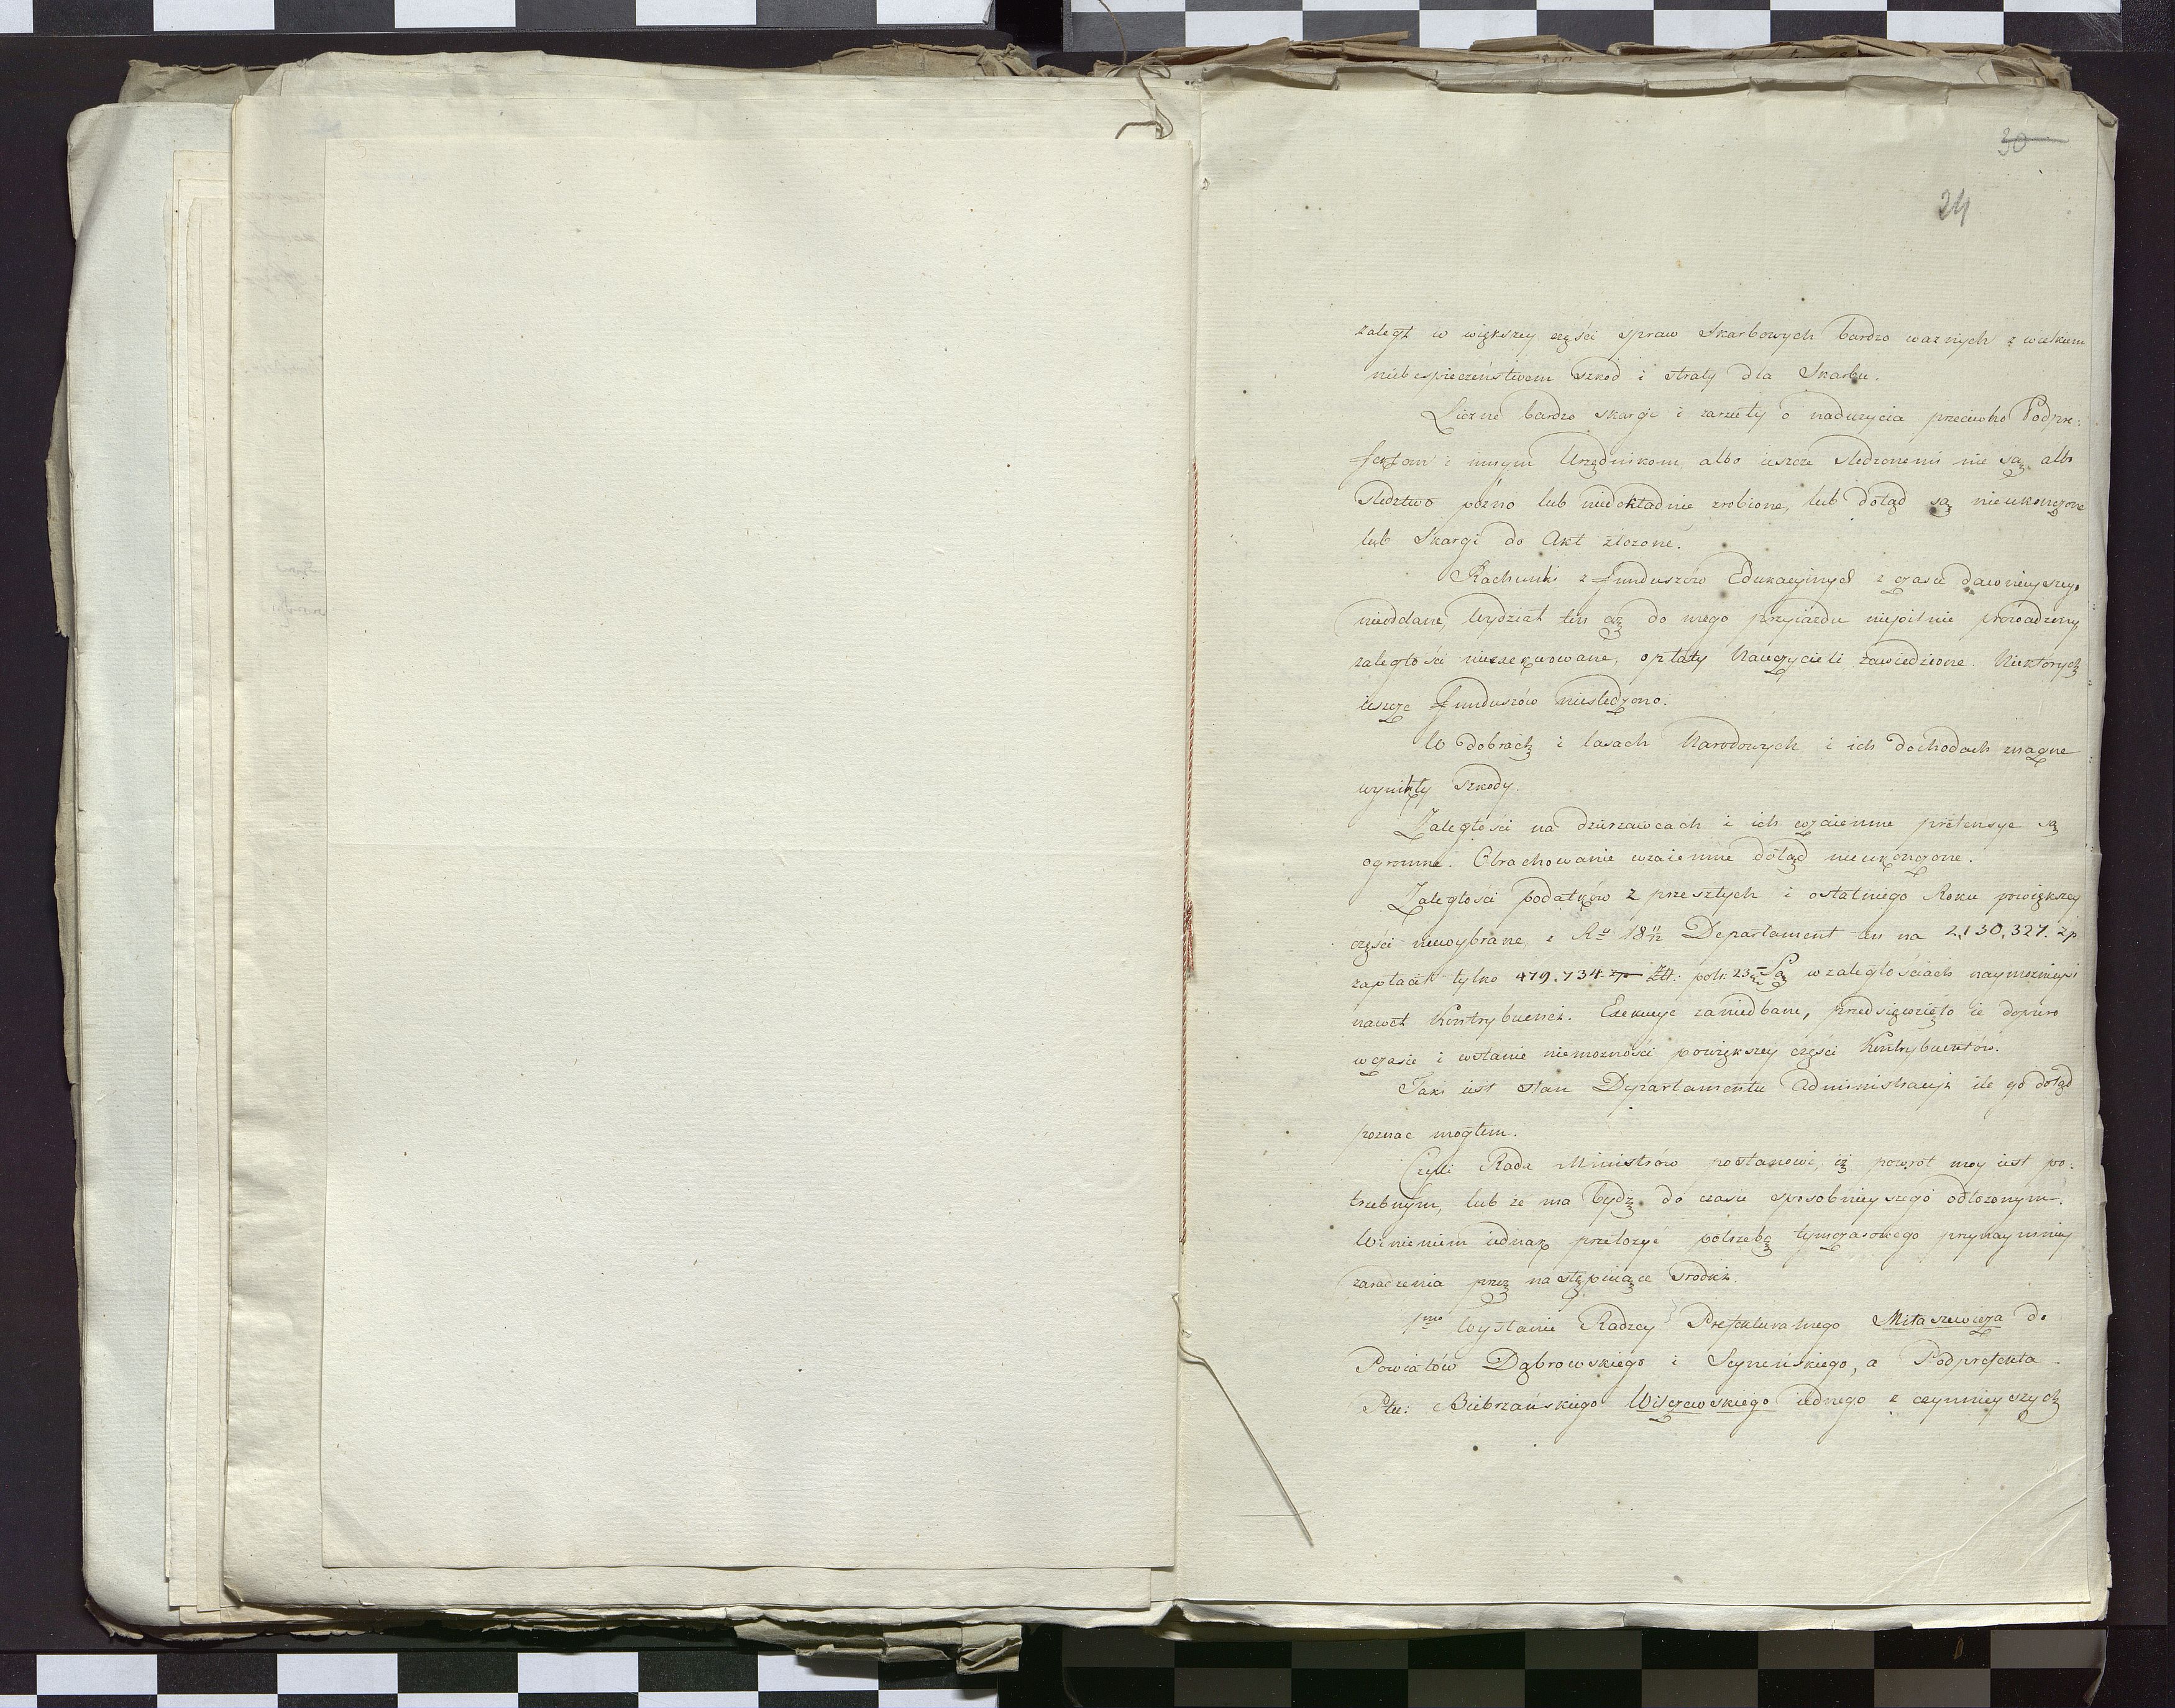 30
24
zaległ w większey części spraw Skarbowych bardzo waznych z wielkiem
niebespieczeństwem szkod i straty dla Skarbu.
Liczne bardzo skargi i zarzuty o naduzycia przeciwko Podpre:
fektom i innym Urzędnikom, albo ieszcze sledzonemi nie są albo
sledztwo pozno lub niedokładnie zrobione, lub dotąd są nieukonczone
lub Skargi do Akt złozone.
Rachunki z funduszów Edukacyinych z czasu dawnieyszego
nieoddane, Wydział ten az do mego przyiazdu niepilnie prowadzony
zaległości nieexekwowane, opłaty Nauczycieli zawiedzione. Niektorych
ieszcze funduszów niesledzono.
W dobrach i lasach Narodowych i ich dochodach znaczne
wynikły szkody.
Zaległości na dzierzawcach i ich wzaiemne pretensye są
ogromne. Obrachowanie wzaiemne dotąd nieukonczone.
Zaległości podatków z przeszłych i ostatniego Roku powiększey
części niewybrane, z Ru 18 11/12 Departament ten na 2,130,327. zp
zapłacił tylko 479.734. Złł: pols: 23. Są w zaległościach naymoznieysi
nawet Kontrybuenci. Exekucye zaniedbane, przedsięwzięto ie dopiero
w czasie i wstanie niemozności powiększey części Kontrybuentów.
Taki iest stan Departamentu Administracyi ile go dotąd
poznac mogłem.
Czyli Rada Ministrów postanowi, iz powrot moy iest po:
trzebnym, lub ze ma bydz do czasu sposobnieyszego odłozonym.
Winienem iednak przełozyć potrzebę tymczasowego przynaymniey
zaradzenia przez następuiące srodki.
1mo Wysłanie Radzcy Prefekturalnego Miłaszewicza do
Powiatów Dąbrowskiego i Seyneńskiego, a Podprefekta
Ptu: Biebrzańskiego Wilczewskiego iednego z czynnieyszych